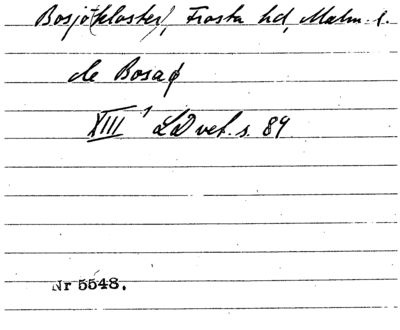 Bosjö(kloster), Frosta hd, Malm. l.
de Bosaø
XIII¹ LD vet. s. 89
Nr 5548.